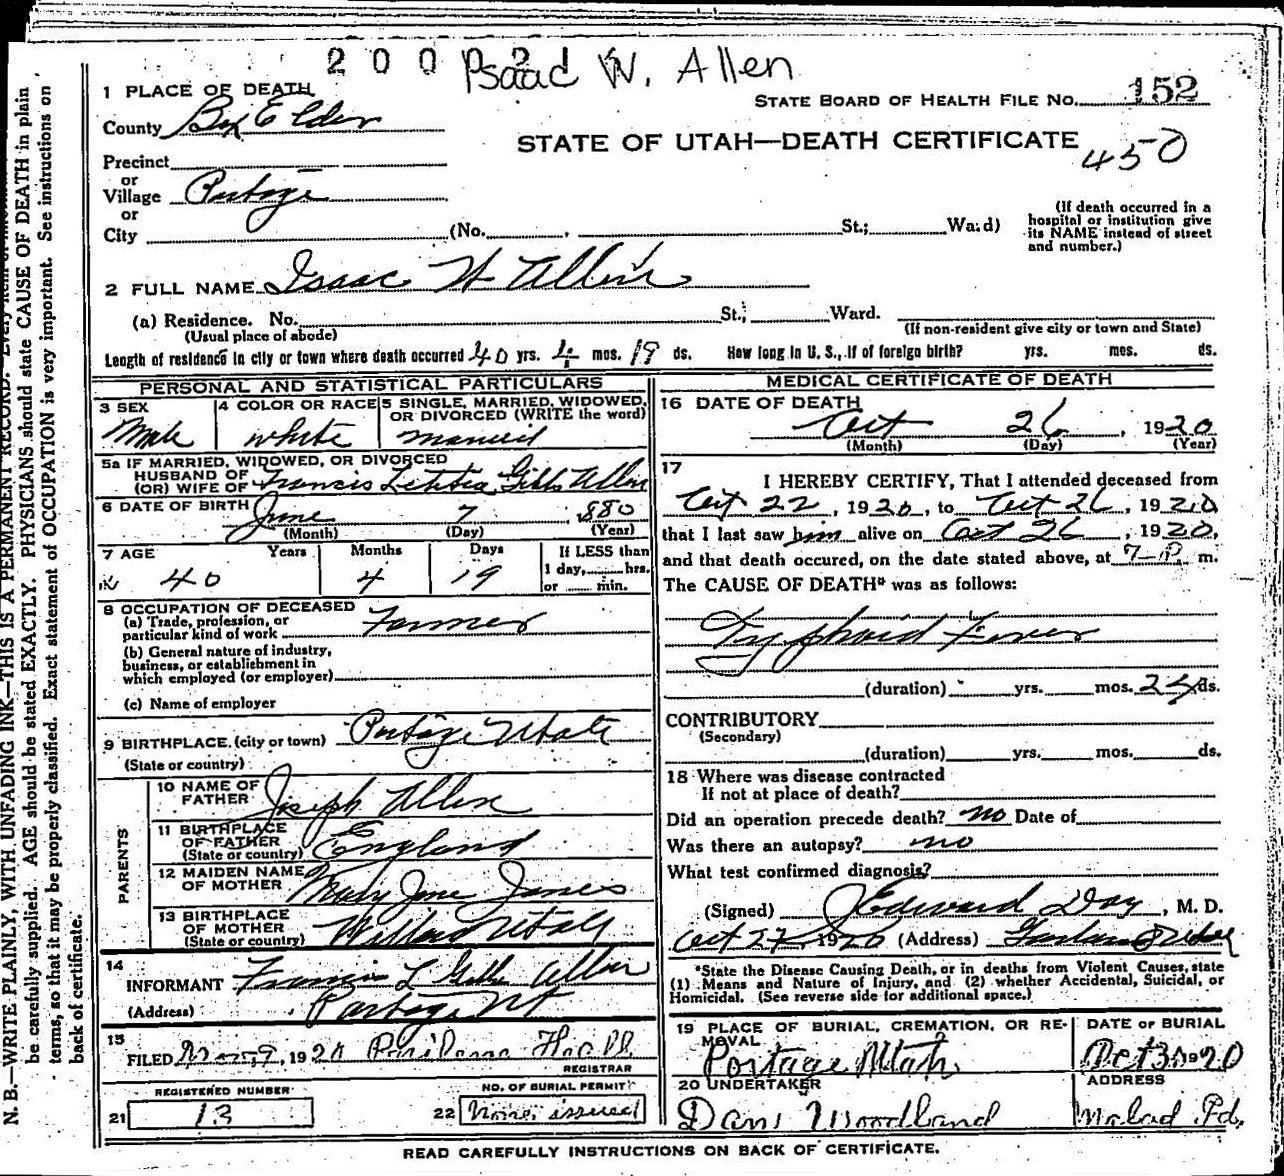 2 0 0 0 2 1 Isaac W. Allen
1 PLACE OF DEATH
STATE BOARD OF HEALTH FILE No. 152
County Box Elder
STATE OF UTAH—DEATH CERTIFICATE
450
Precinct
or
Village Portage
or
City (No. , St.; Ward)
(If death occurred in a
hospital or institution give
its NAME instead of street
and number.)
2 FULL NAME Isaac W Allen
(a) Residence. No. St.; Ward.
(Usual place of abode) (If non-resident give city or town and State)
Length of residence in city or town where death occurred 40 yrs. 4 mos. 19 ds. How long in U. S., if of foreign birth? yrs. mos. ds.
PERSONAL AND STATISTICAL PARTICULARS
3 SEX
Male
4 COLOR OR RACE
white
5 SINGLE, MARRIED, WIDOWED,
OR DIVORCED (WRITE the word)
married
5a IF MARRIED, WIDOWED, OR DIVORCED
HUSBAND OF
(OR) WIFE OF Francis Letitia Gibbs Allen
6 DATE OF BIRTH June 7, 1880
(Month) (Day) (Year)
7 AGE Years Months Days If LESS than
40 4 19 1 day, hrs.
or min.
8 OCCUPATION OF DECEASED
(a) Trade, profession, or
particular kind of work Farmer
(b) General nature of industry,
business, or establishment in
which employed (or employer)
(c) Name of employer
9 BIRTHPLACE (city or town) Portage Utah
(State or country)
PARENTS
10 NAME OF
FATHER Joseph Allen
11 BIRTHPLACE
OF FATHER
(State or country) England
12 MAIDEN NAME
OF MOTHER Mary Jane Jones
13 BIRTHPLACE
OF MOTHER
(State or country) Willard Utah
14
INFORMANT Francis L Gibbs Allen
(Address) Portage Ut
15
FILED 1920 Hall
REGISTRAR
REGISTERED NUMBER
21 13
NO. OF BURIAL PERMIT
22 None issued
MEDICAL CERTIFICATE OF DEATH
16 DATE OF DEATH
Oct 26, 1920
(Month) (Day) (Year)
17
I HEREBY CERTIFY, That I attended deceased from
Oct 22, 1920, to Oct 26, 1920
that I last saw him alive on Oct 26, 1920,
and that death occured, on the date stated above, at 7-P. m.
The CAUSE OF DEATH* was as follows:
Typhoid Fever
(duration) yrs. mos. 24 ds.
CONTRIBUTORY
(Secondary)
(duration) yrs. mos. ds.
18 Where was disease contracted
If not at place of death?
Did an operation precede death? no Date of
Was there an autopsy? no
What test confirmed diagnosis?
(Signed) J Edward Day, M. D.
Oct 27, 1920 (Address) Garland Utah
*State the Disease Causing Death, or in deaths from Violent Causes, state
(1) Means and Nature of Injury, and (2) whether Accidental, Suicidal, or
Homicidal. (See reverse side for additional space.)
19 PLACE OF BURIAL, CREMATION, OR RE-
MOVAL
Portage Utah
DATE OF BURIAL
Oct 30 1920
20 UNDERTAKER
Dan Woodland
ADDRESS
Malad Id.
READ CAREFULLY INSTRUCTIONS ON BACK OF CERTIFICATE.
N. B.—WRITE PLAINLY, WITH UNFADING INK—THIS IS A PERMANENT RECORD. Every item of
be carefully supplied. AGE should be stated EXACTLY. PHYSICIANS should state CAUSE OF DEATH in plain
terms, so that it may be properly classified. Exact statement of OCCUPATION is very important. See instructions on
back of certificate.